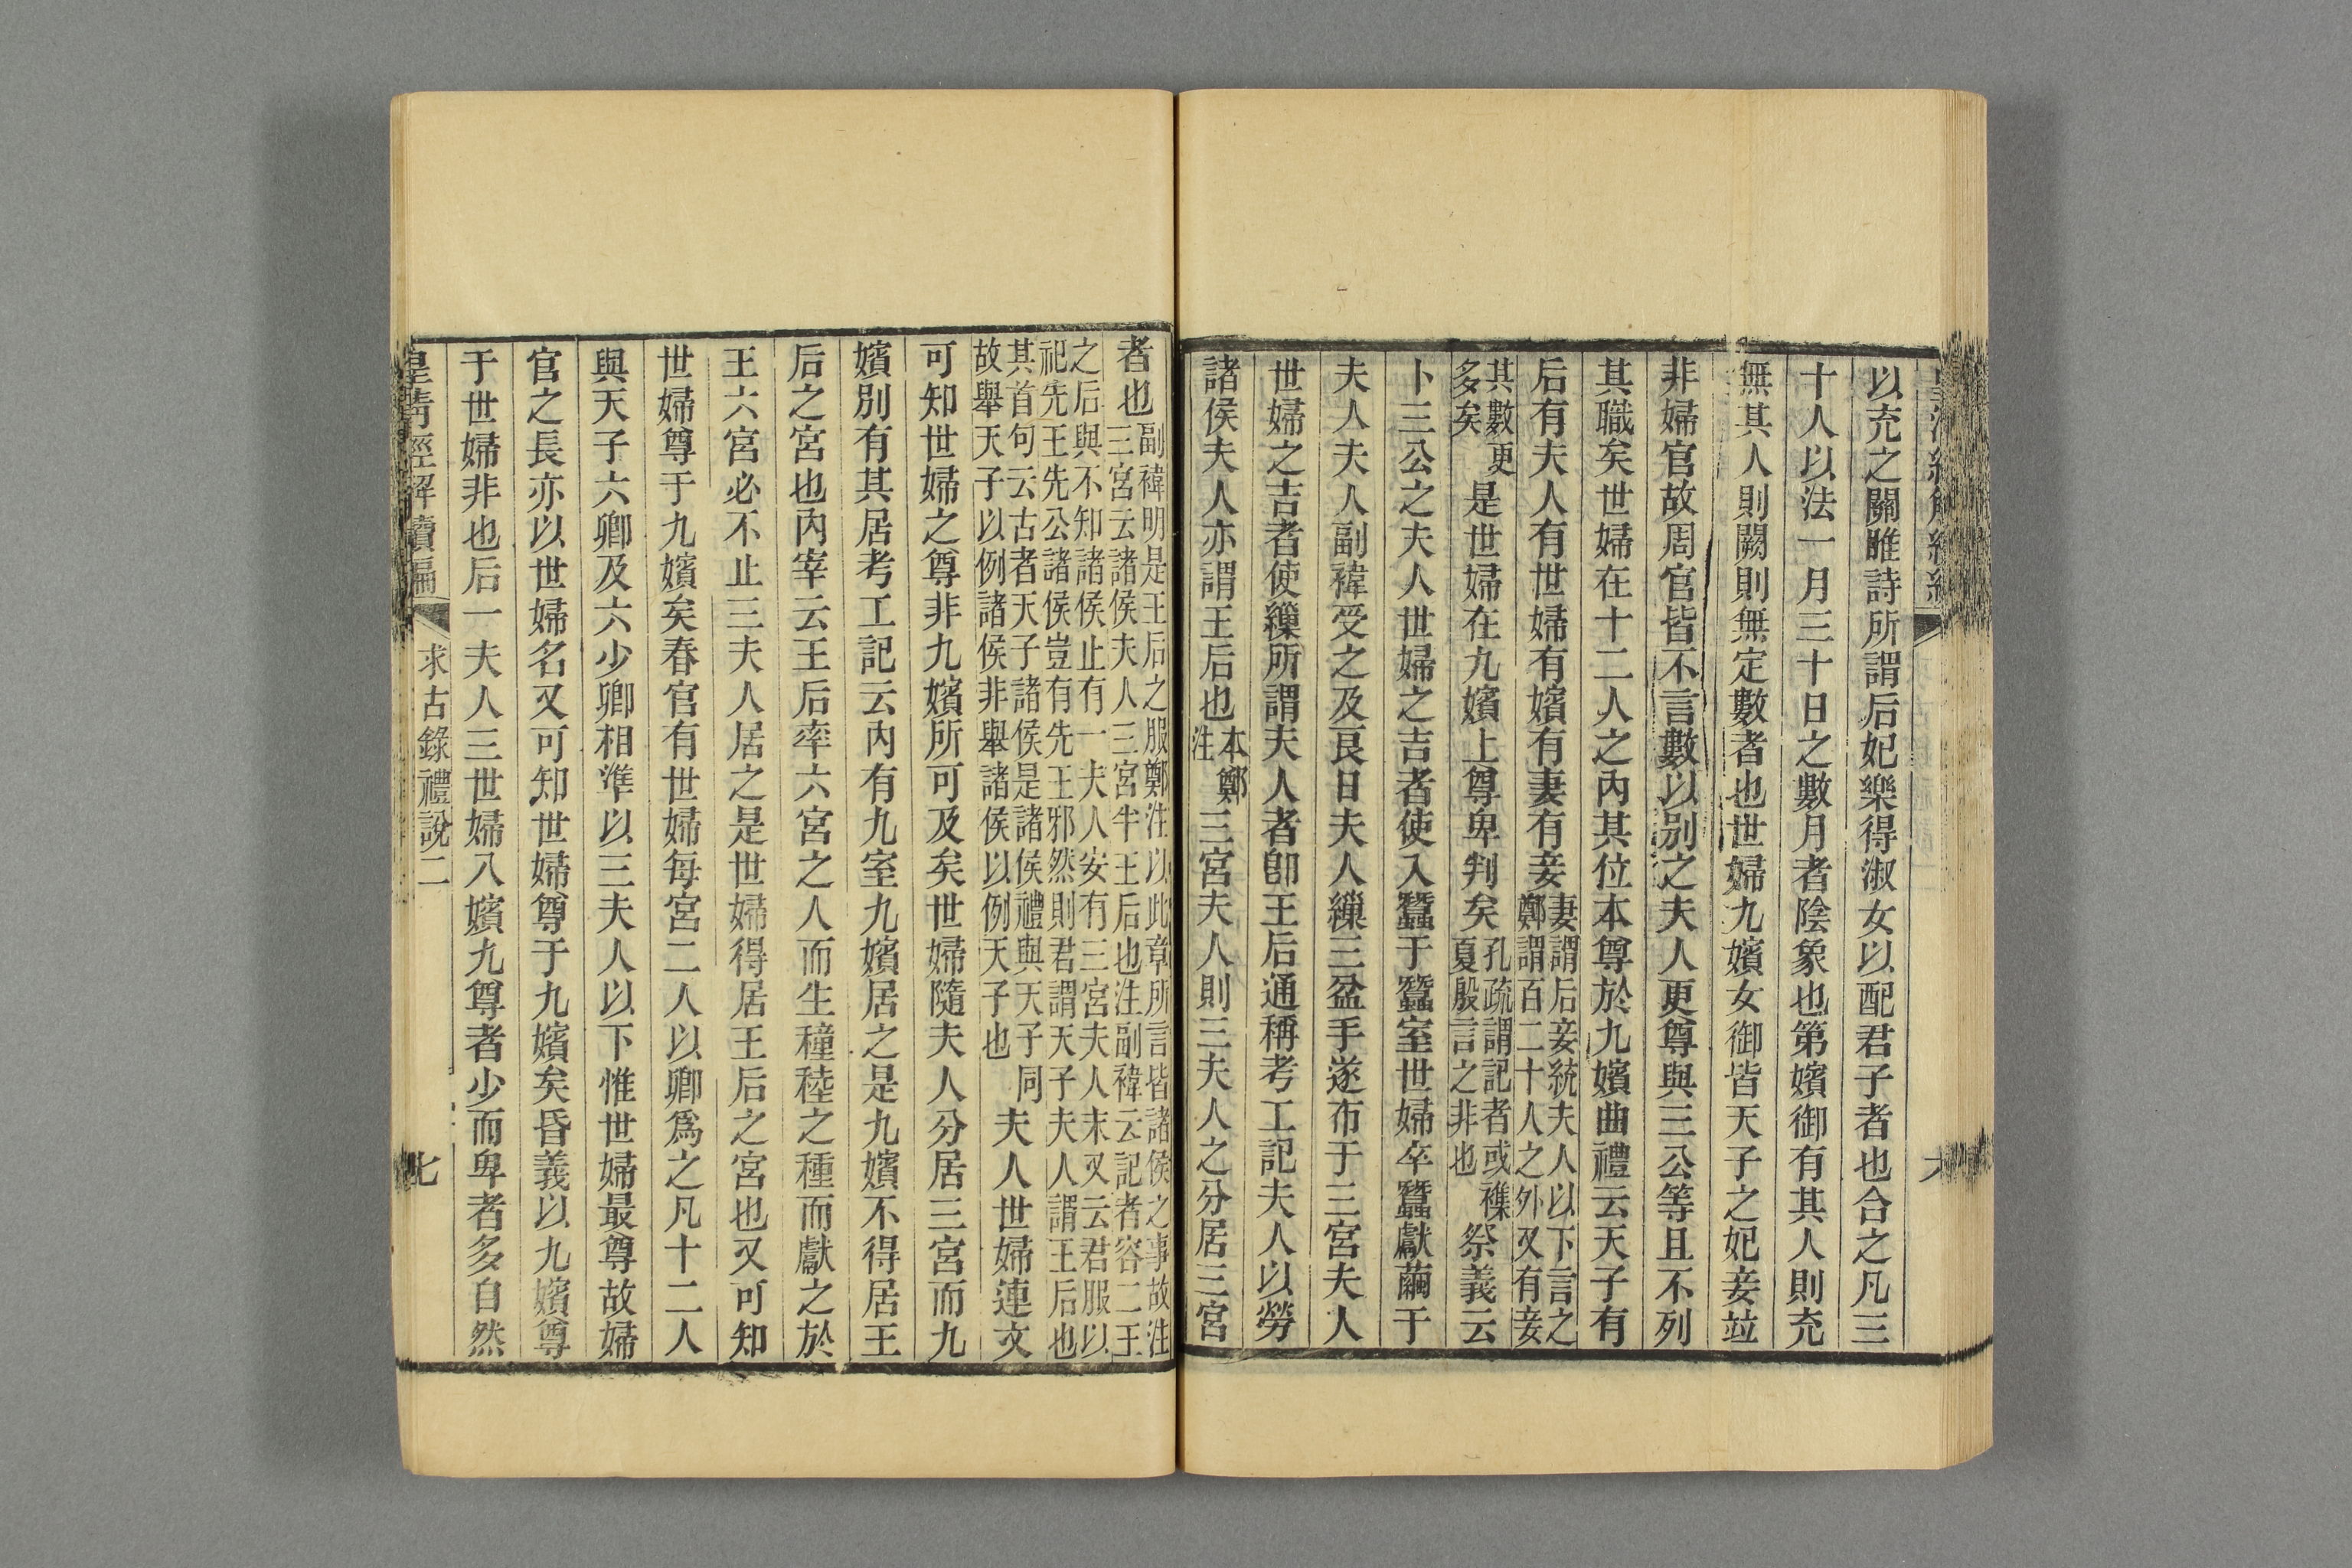 以充之關雎詩所謂后妃樂得淑女以配君子者也合之凡三
十人以法一月三十日之數月者陰象也第嬪御有其人則充
無其人則闕則無定數者也世婦九嬪女御皆天子之妃妾竝
非婦官故周官皆不言數以別之夫人更尊與三公等且不列
其職矣世婦在十二人之內其位本尊於九嬪曲禮云天子有
后有夫人有世婦有嬪有妻有妾妻謂后妾統夫人以下言之鄭謂百二十人之外又有妾
其數更多矣是世婦在九嬪上尊卑判矣孔疏謂記者或襍夏殷言之非也祭義云
卜三公之夫人世婦之吉者使入蠶于蠶室世婦卒蠶獻繭于
夫人夫人副褘受之及良日夫人繅三盆手遂布于三宮夫人
世婦之吉者使繅所謂夫人者卽王后通稱考工記夫人以勞
諸侯夫人亦謂王后也本鄭注三宮夫人則三夫人之分居三宮
者也副褘明是王后之服鄭注以此章所言皆諸侯之事故注三宮云諸侯夫人三宮半王后也注副褘云記者容二王
之后與不知諸侯止有一夫人安有三宮夫人末又云君服以祀先王先公諸侯豈有先王邪然則君謂天子夫人謂王后也
其首句云古者天子諸侯是諸侯禮與天子同故舉天子以例諸侯非舉諸侯以例天子也夫人世婦連文
可知世婦之尊非九嬪所可及矣世婦隨夫人分居三宮而九
嬪別有其居考工記云內有九室九嬪居之是九嬪不得居王
后之宮也內宰云王后率六宮之人而生穜稑之種而獻之於
王六宮必不止三夫人居之是世婦得居王后之宮也又可知
世婦尊于九嬪矣春官有世婦每宮二人以卿爲之凡十二人
與天子六卿及六少卿相準以三夫人以下惟世婦最尊故婦
官之長亦以世婦名又可知世婦尊于九嬪矣昏義以九嬪尊
于世婦非也后一夫人三世婦八嬪九尊者少而卑者多自然
皇清經解續編 求古錄禮說二 七